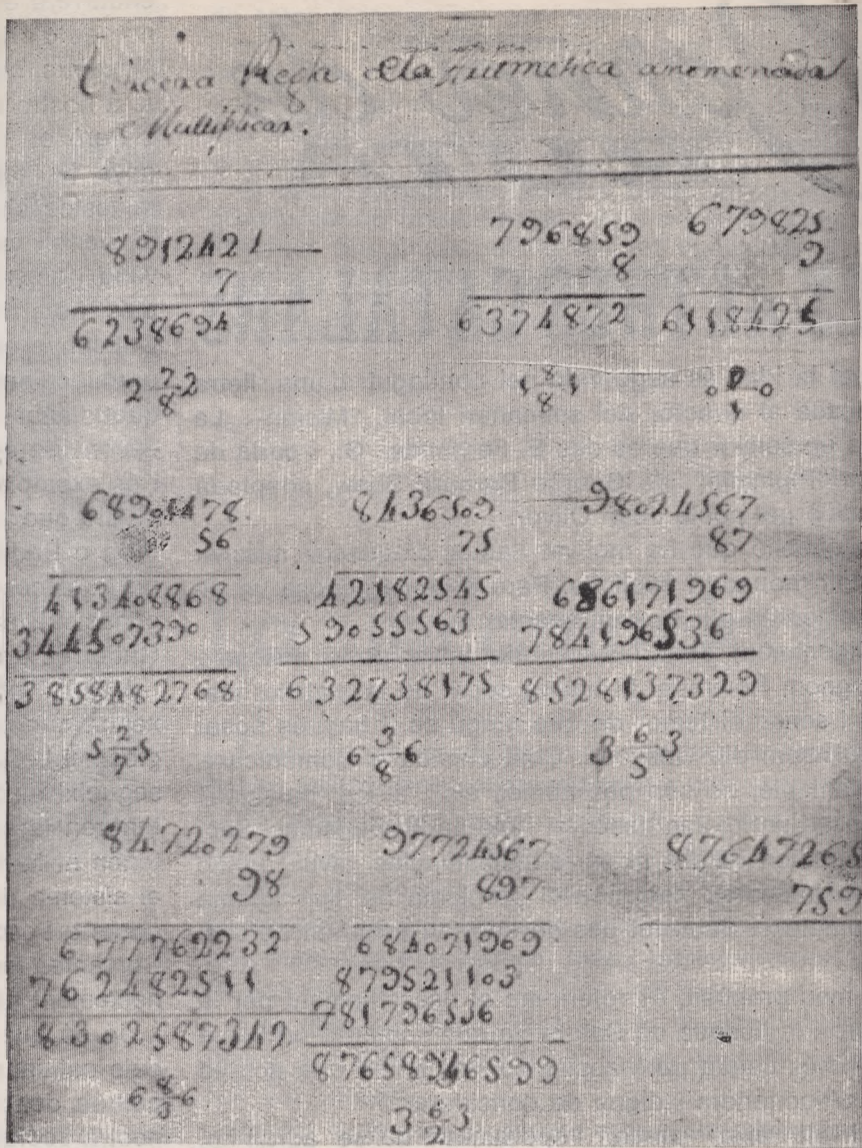 tercera Regla de la Aritmetica anomenada
Multiplicar.
8912421
7
6238694
2 7/8 2
796859
8
6374872
1 8/8 1
679825
9
6118425
0 0/1 0
68901478
56
413408868
344507390
3858482768
5 2/7 5
8436509
75
42182545
59055563
632738175
6 3/8 6
98024567
87
686171969
784196536
8528137329
3 6/5 3
84720279
98
677762232
762482511
8302587342
6 8/3 6
97724567
897
684071969
879521103
781796536
87658946599
3 6/2 3
87647265
759